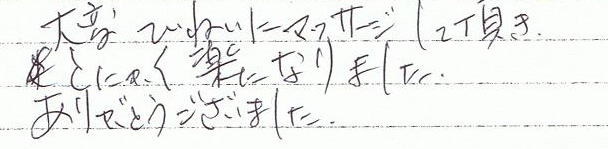 大変ていねいにマッサージして頂き
とにかく楽になりました。
ありがとうございました。